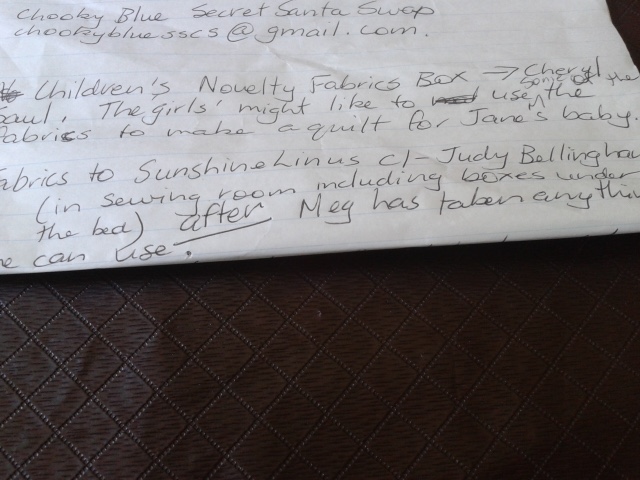 Chooky Blue Secret Santa Swap
chookybluesscs@gmail.com.
Children's Novelty Fabrics Box → Cheryl
Paul. The 'girls' might like to use some of the
fabrics to make a quilt for Jane's baby.
Fabrics to Sunshine Linus c/- Judy Bellingham
(in sewing room including boxes under
the bed) after Meg has taken anythin
e can use.